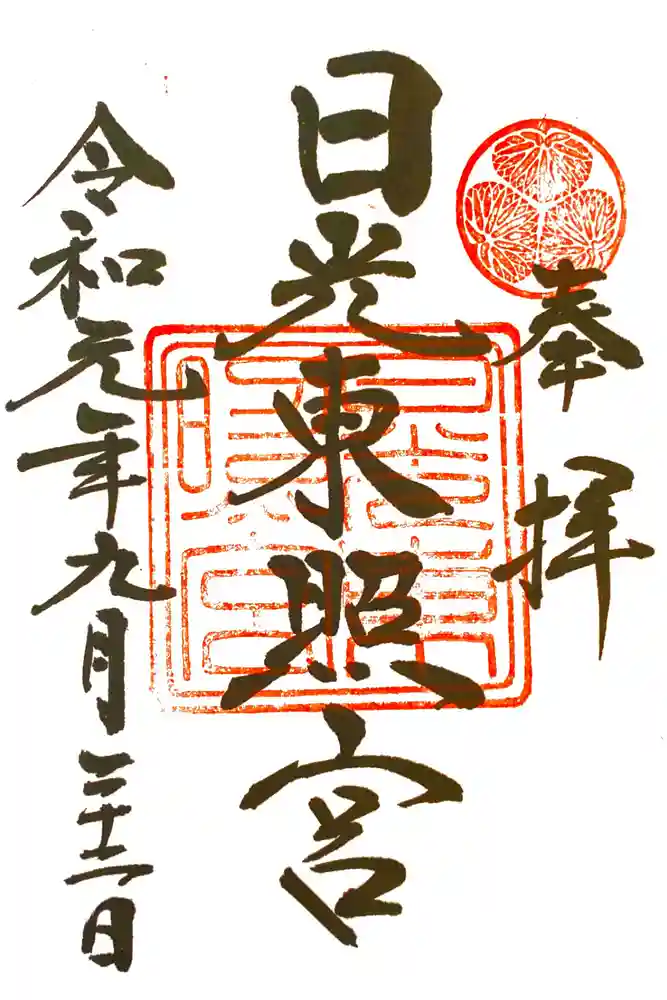 奉拝
日光東照宮
令和元年九月二十二日